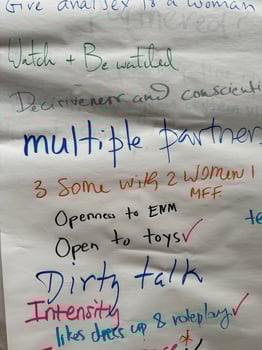 Give anal sex to a woman
Watch + Be watched
Decisiveness and conscienti
multiple partner
3 Some with 2 women 1
MFF.
Openness to ENM
Open to toys✓
te
Dirty talk
Intensity
likes dress up & roleplay ✓